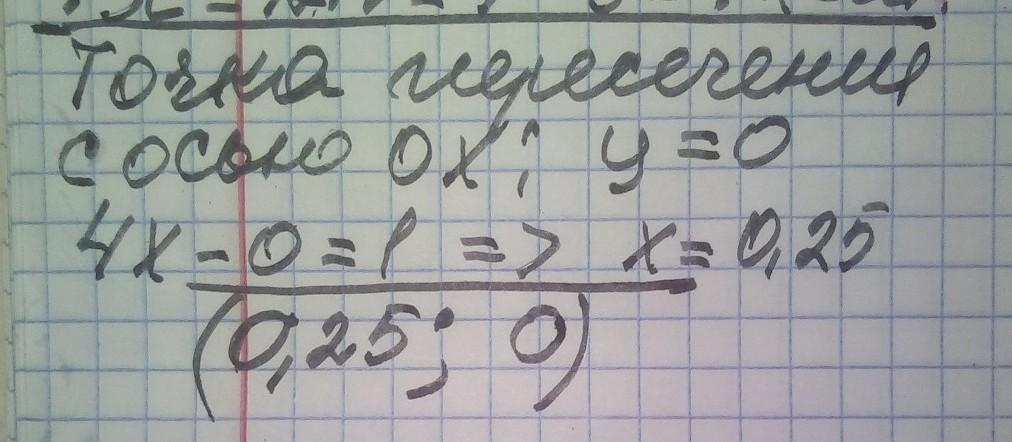 Точка пересечения
с осью OX: y = 0
4x - 0 = 1 => x = 0,25
(0,25; 0)